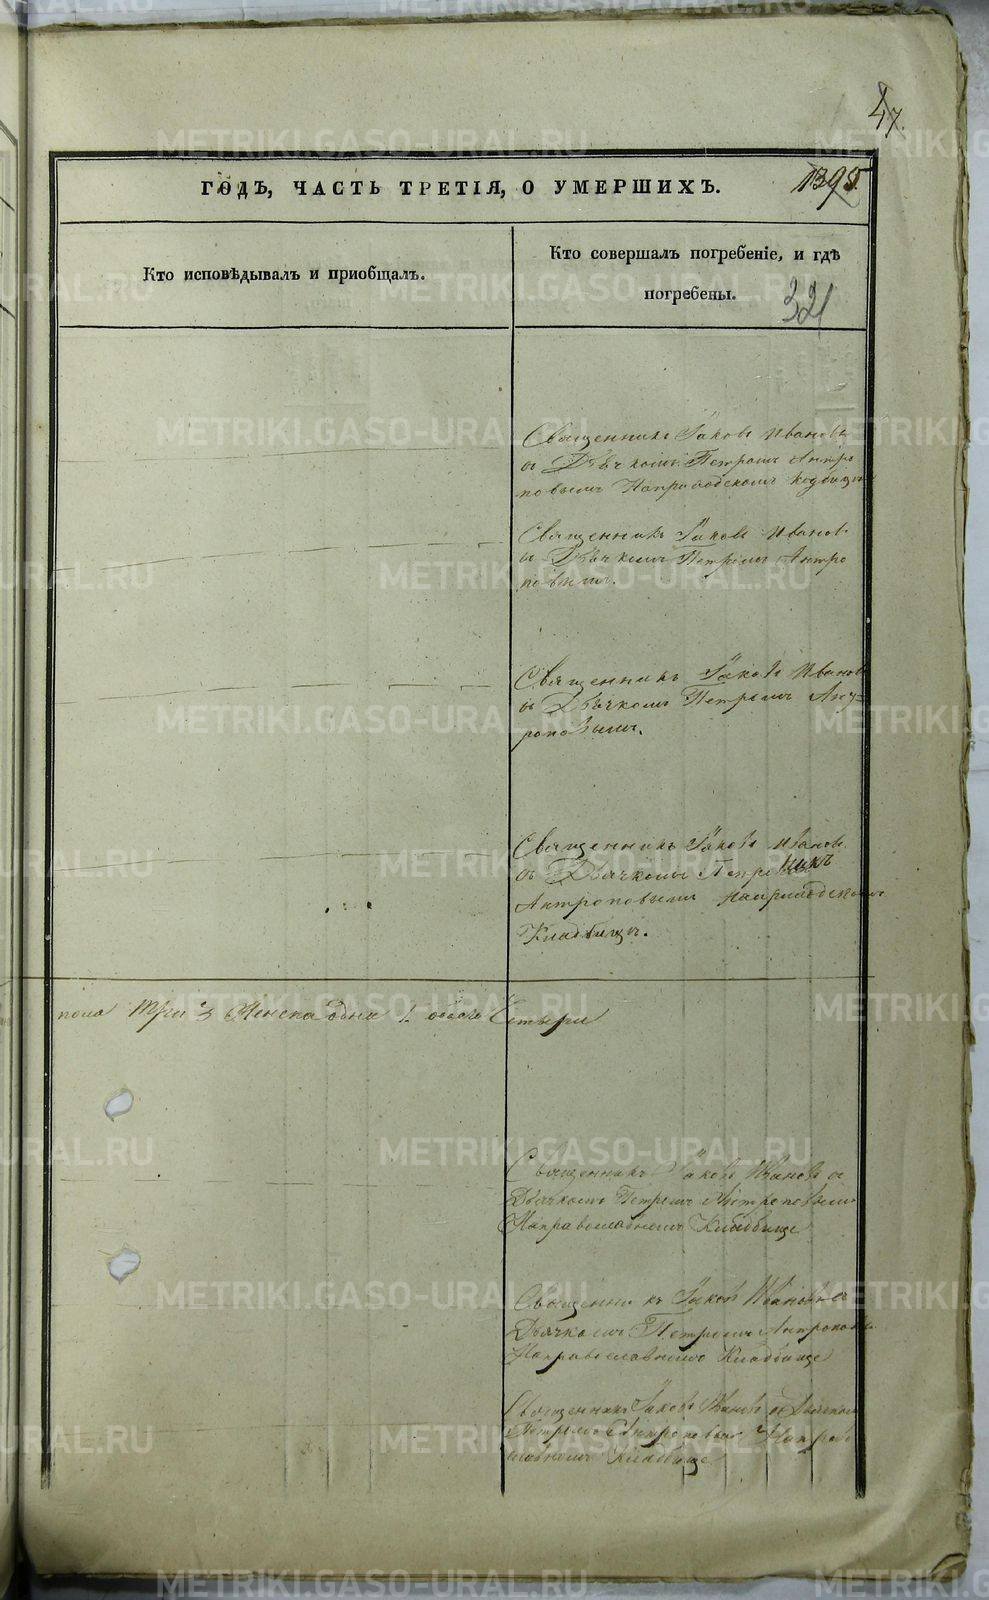 47.
ГОДЪ, ЧАСТЬ ТРЕТІЯ, О УМЕРШИХЪ.
Кто исповѣдывалъ и пріобщалъ.
Кто совершалъ погребеніе, и гдѣ
погребены.
321
Священникъ Іаковъ Ивановъ
съ Дьячкомъ Петромъ Антро
повымъ
Священникъ Іаковъ Иванов
съ Дьячкомъ Петромъ Антро
повымъ.
Священникъ Іаковъ Иванов
съ Дьячкомъ Петромъ Ант
роповымъ.
Священникъ Іаковъ Иванов
съ Дьячкомъ
Антроповымъ
Кладбищѣ.
пола три 3 Женска одна 1 обоего Четыри
Священникъ Іаковъ Ивановъ съ
Дьячкомъ Петромъ Антроповымъ
Направославномъ Кладбище
Священникъ Іаковъ Ивановъ съ
Дьячкомъ Петромъ Антроповы
Направославномъ Кладбище
Священникъ Іаковъ Ивановъ съ Дьячком
Петромъ Антроповым Направо
славномъ Кладбище
METRIKI.GASO-URAL.RU